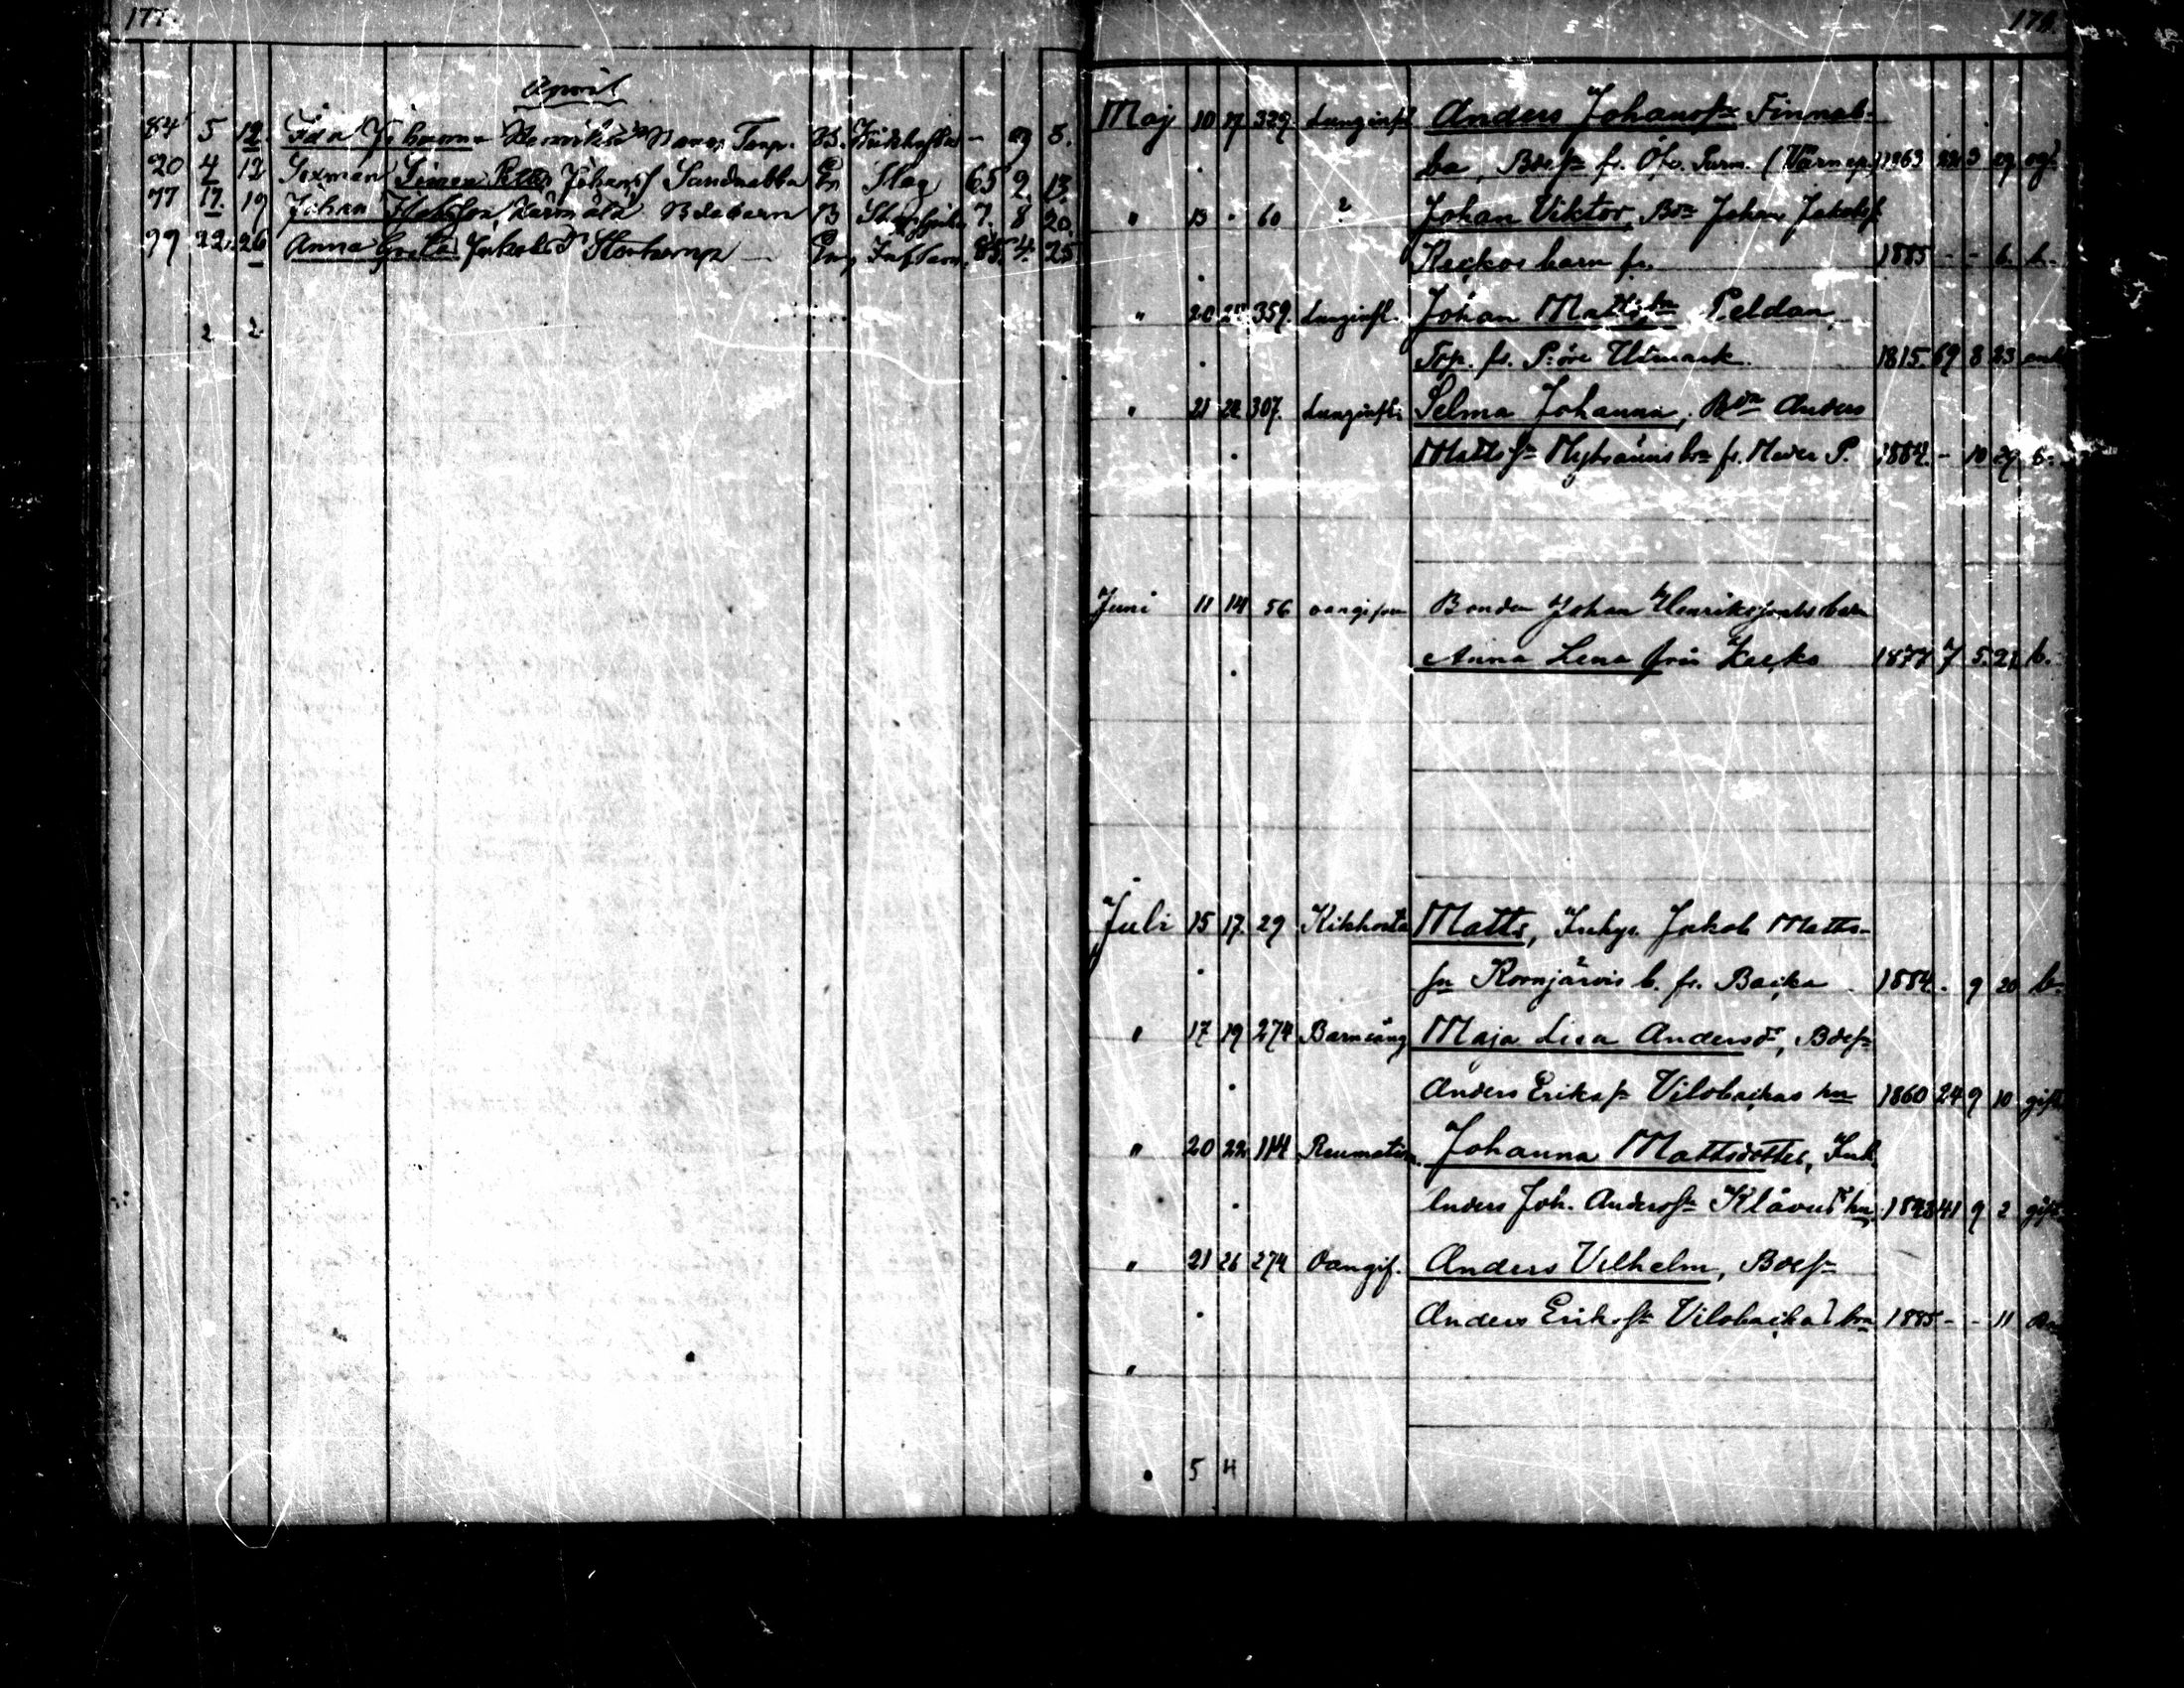 177.
April
84 5 12. Ida Johanna Torp. B. Kikhosta - 9 3.
20 4 12 Sexman Simon Johansf Sandnabba Slag 65 2. 13.
77 17. 19 Johan B 7. 8 20.
99 22. 26 Anna Greta Jakobsd Storkamp Inflam. 85. 4. 25
2 2
178.
Maj 10 17 329. Lunginfl Anders Johansfn Finnab-
ba, Bdesn fr. Öfv. Purm. (Värnepl) 1863 3 29 ogi.
" 13 " 60 ? Johan Viktor, Bdn Johan Jakobsf
Keckos barn fr. 1885 - - 6. b.
" 20 24 359. Lunginfl. Johan Mattsfn Peldan,
Trp. fr. P:öre Utmark 1815. 69 8 23 enk
" 21 24 307. Lunginfl. Selma Johanna, Bdn Anders
Mattsfn brn fr. Neder P. 1884. - 10 29 b.
Juni 11 14 56 oangifven Bonden Johan Henrikssons barn
Anna Lena från Kecko 1877 7 5. 21 b.
Juli 15 17 29 Kikhosta Matts, Inhys. Jakob Matts-
sn Kornjärvis b. fr. Backa 1884. - 9 20 b.
" 17 19 274 Barnsäng Maja Lisa Andersdr, Bdesn
Anders Eriksfn Vilobackas hu 1860 24 9 10 gift
" 20 22 114 Reumatism. Johanna Mattsdotter, Inh.
Anders Joh. Andersfn Klåvus hu 1843 41 9 2 gift
" 21 26 274 Oangif. Anders Vilhelm, Bdesn
Anders Eriksfn Vilobacka brn 1885 - - 11
"
5 4